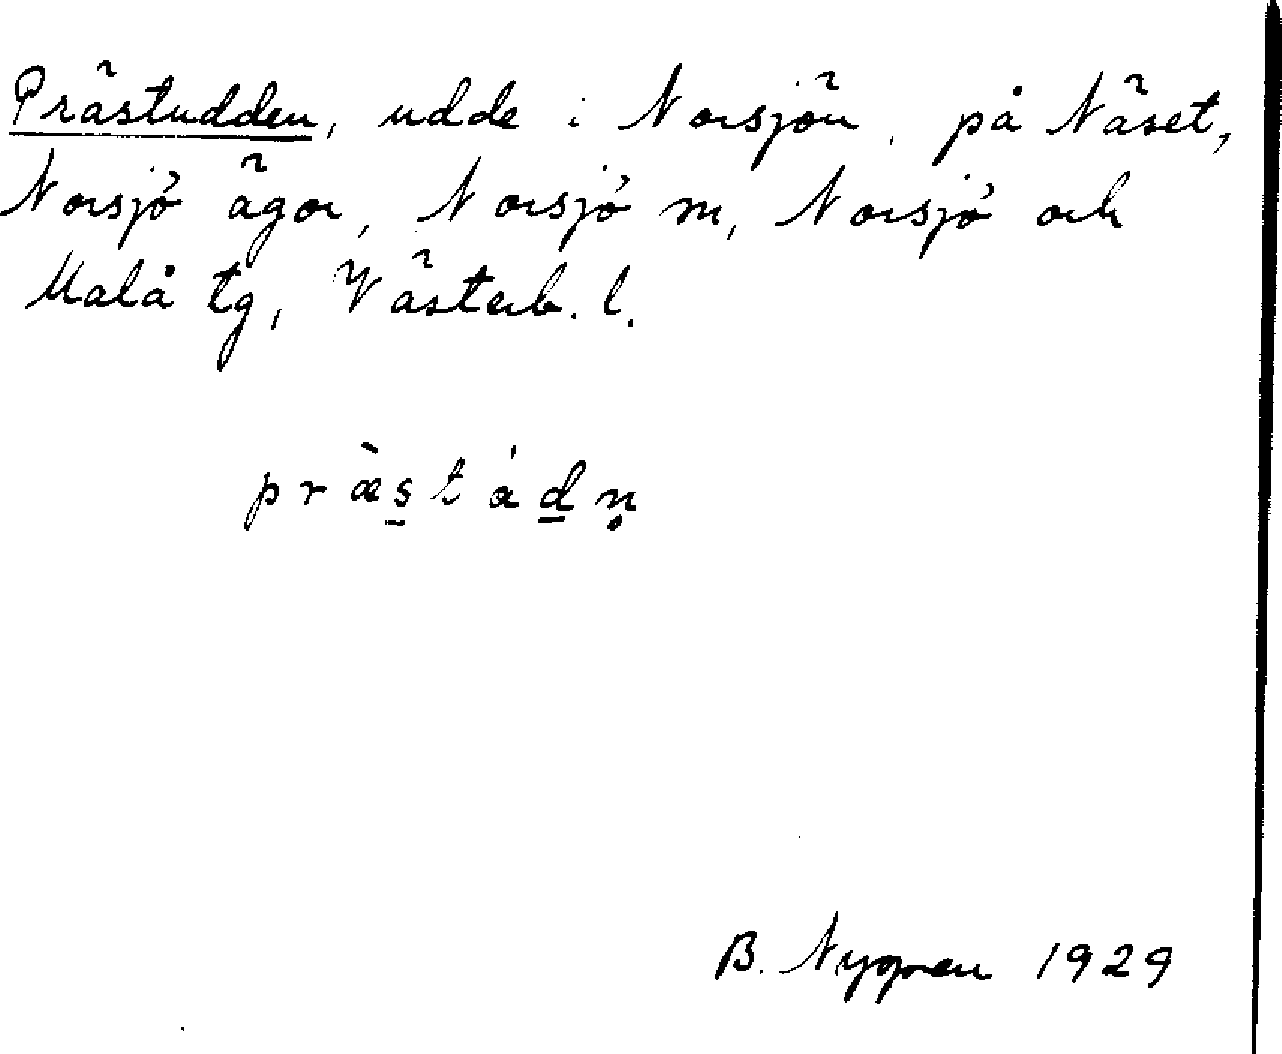 Prästudden, udde i Norsjön, på Näset,
Norsjö ägor, Norsjö sn, Norsjö och
Malå tg, Västerb. l.
præ̀s̱táḏn̥
B. Nygren 1929